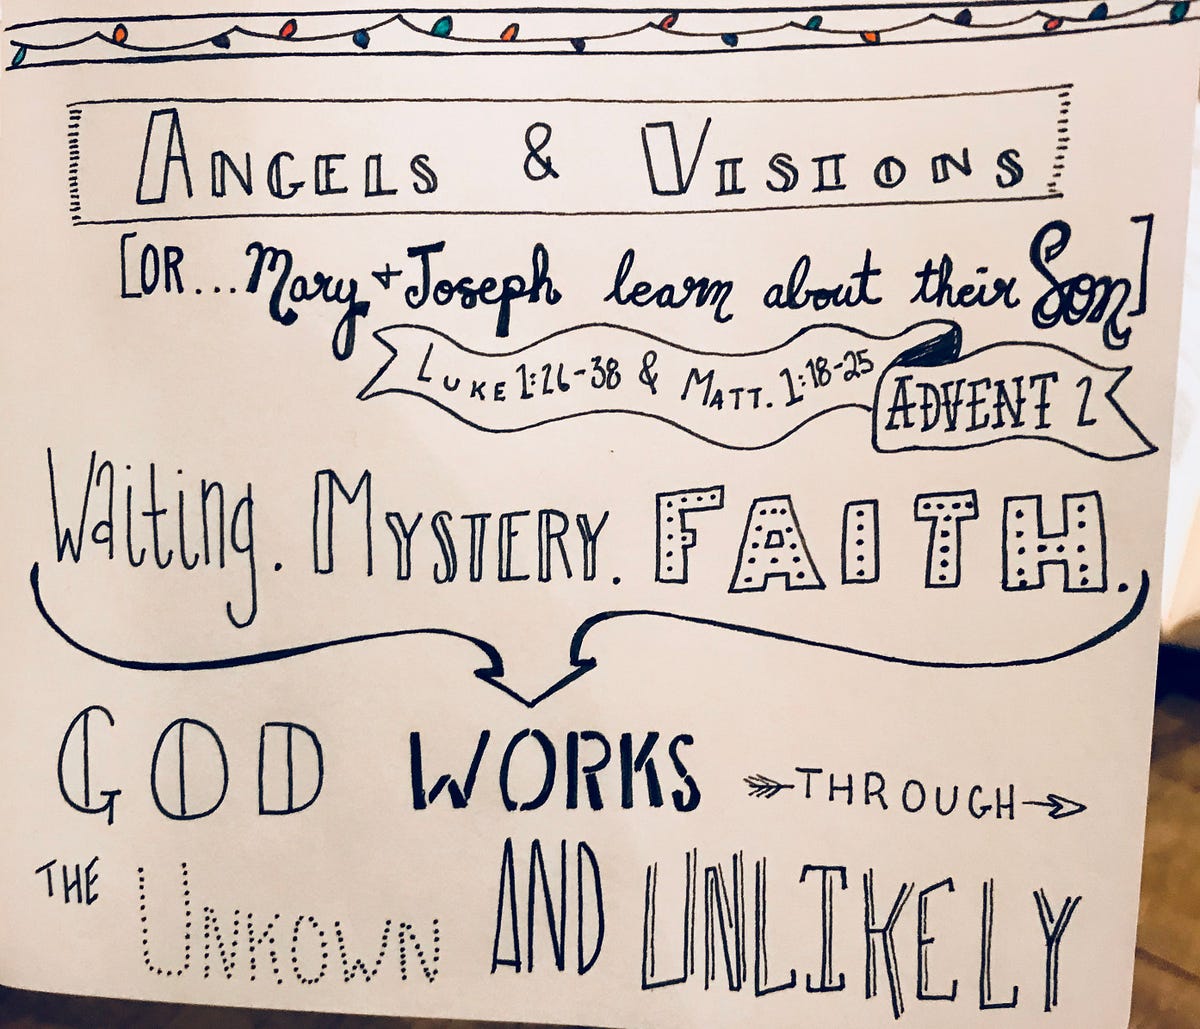 ANGELS & VISIONS
[OR... Mary + Joseph learn about their Son]
LUKE 1:26-38 & MATT. 1:18-25
ADVENT 2
Waiting. MYSTERY. FAITH.
GOD WORKS THROUGH
THE UNKOWN AND UNLIKELY